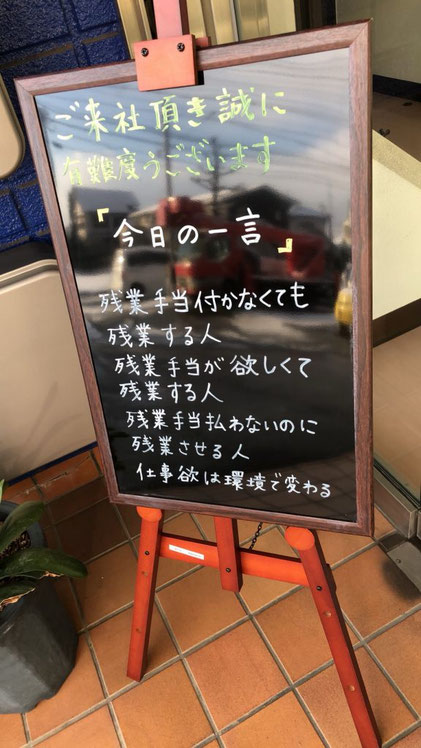 ご来社頂き誠に
有難度うございます
『今日の一言』
残業手当付かなくても
残業する人
残業手当が欲しくて
残業する人
残業手当払わないのに
残業させる人
仕事欲は環境で変わる